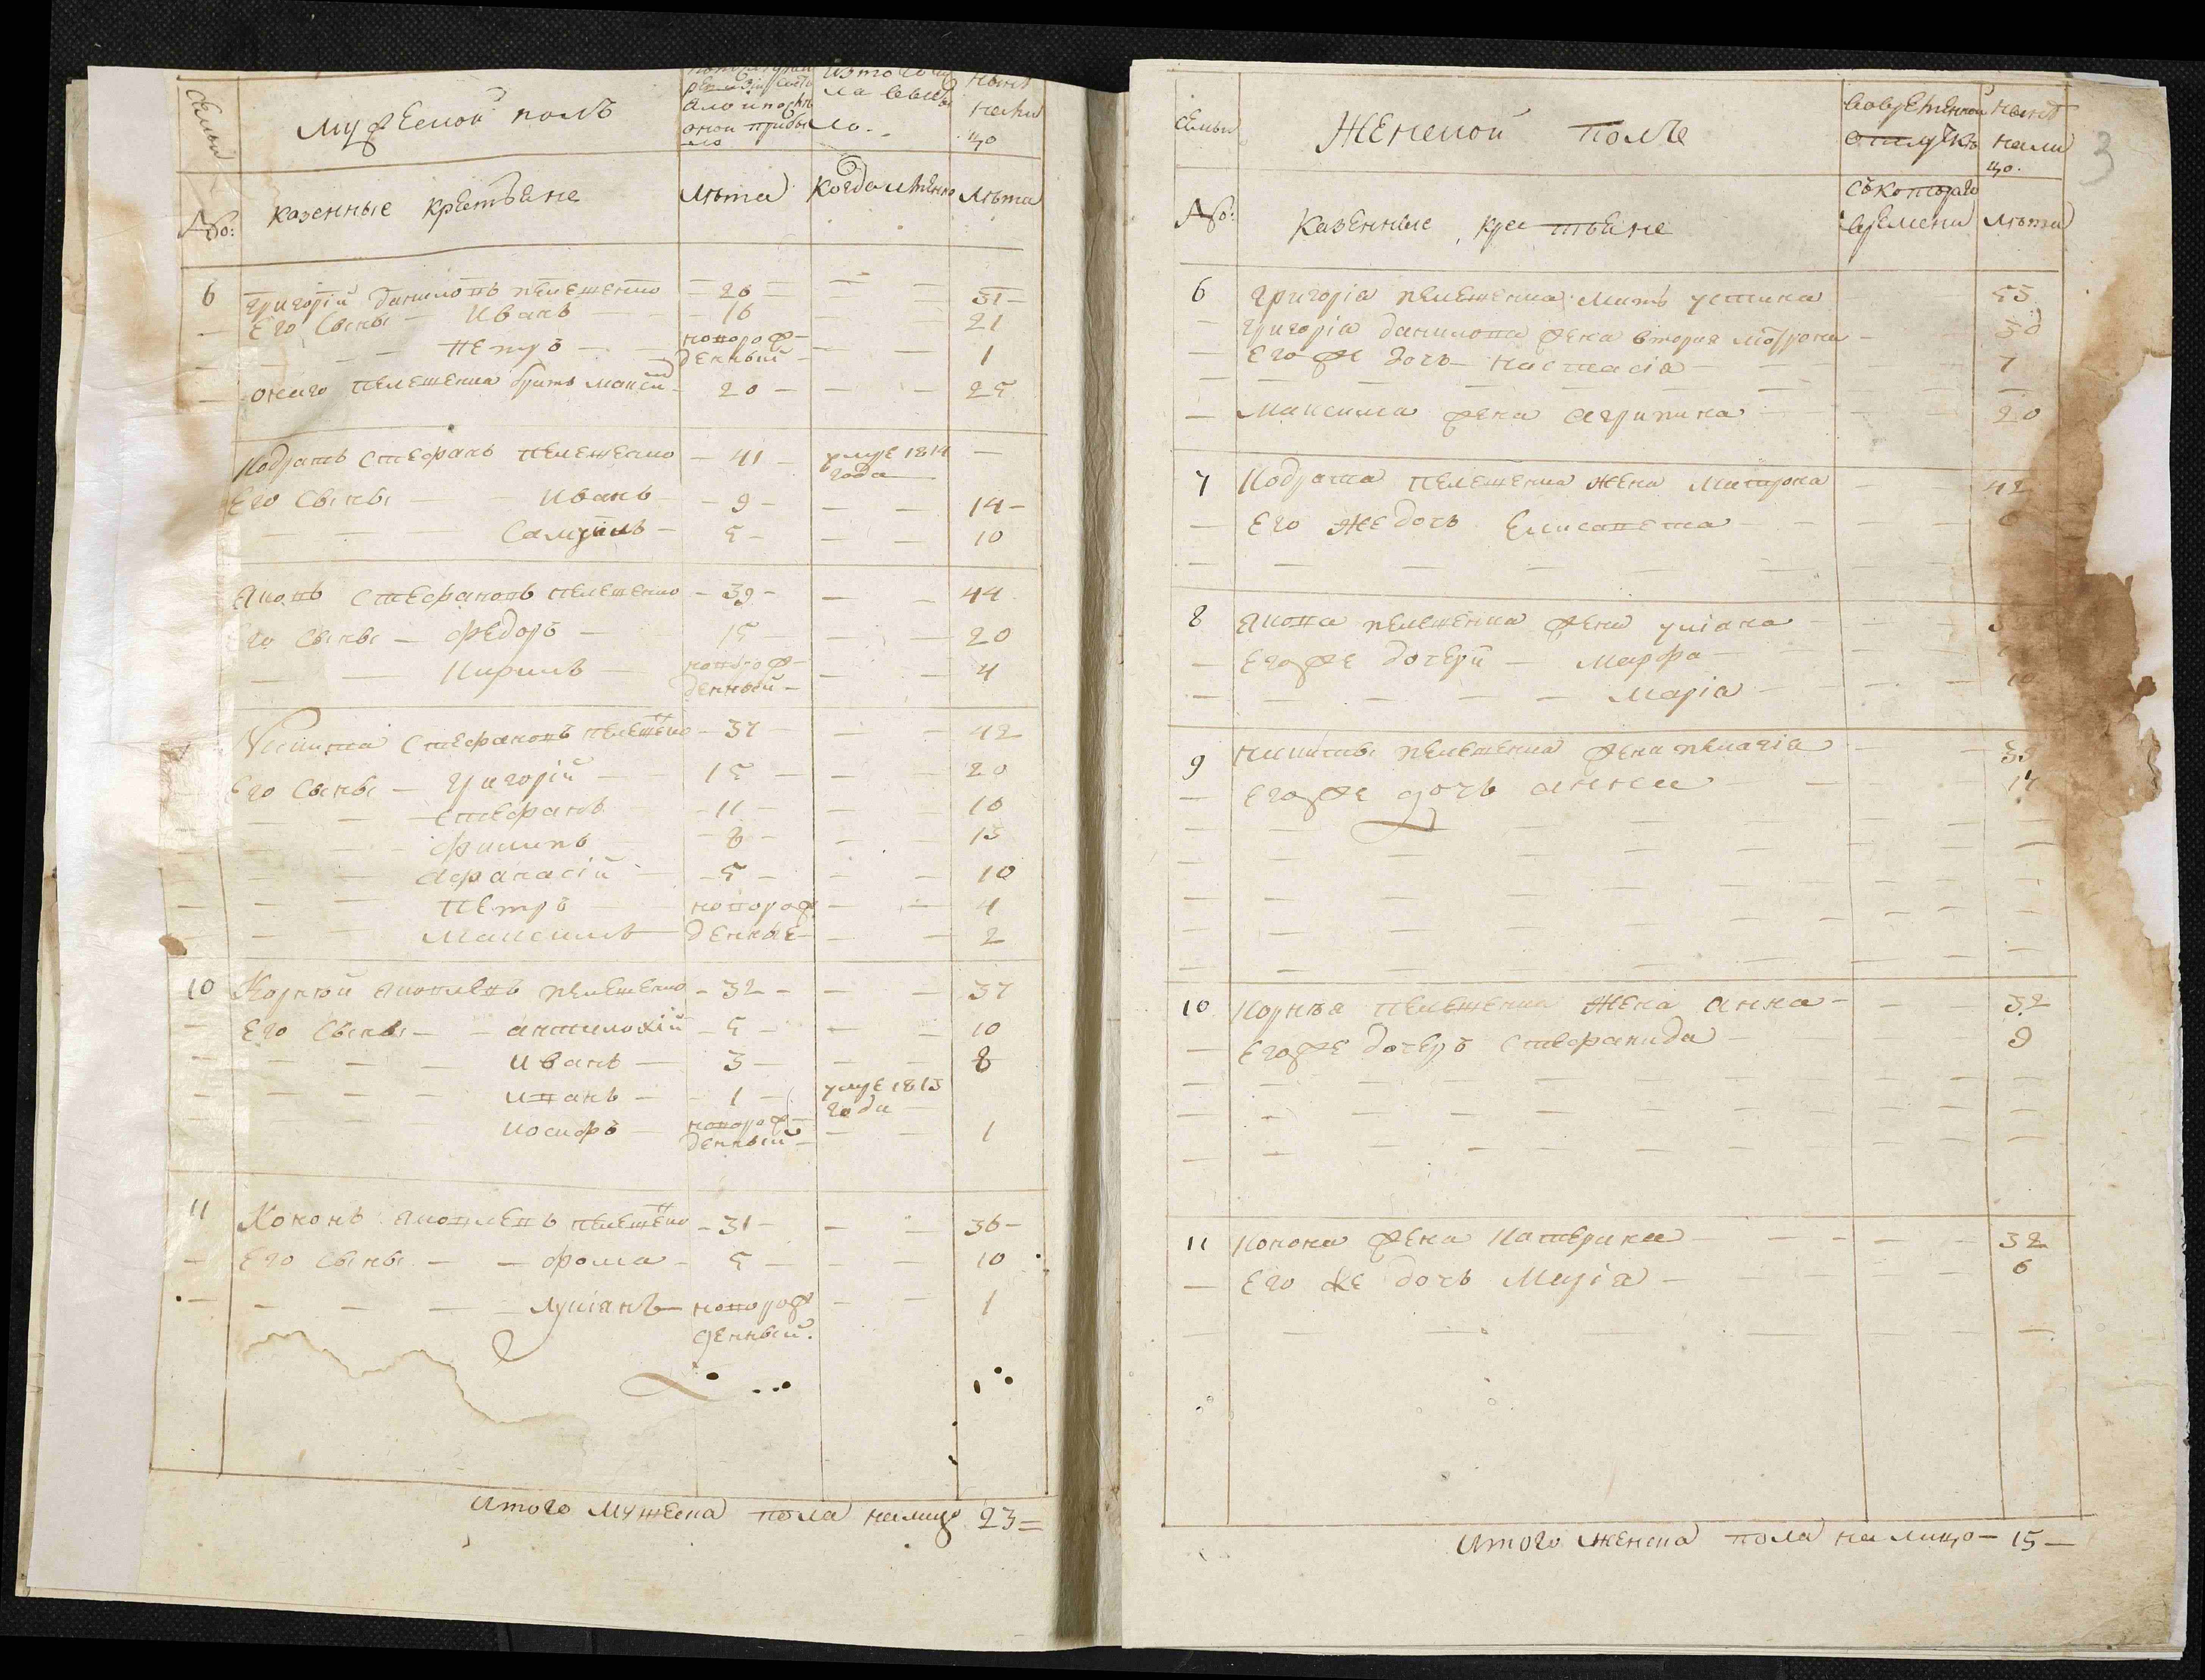 Семьи
Мужеской полъ
ла ныне
ло
ныне
нали
цо
№:
казенные крестьяне
Лѣта
Когда именно
Лѣта
6 Григорій Даниловъ Пелешенко — 26 — — — 31 —
— Его Сыны — Иванъ — 16 — — 21
— — Петръ — новорож
денный — — 1
— онаго Пелешенка братъ Максим — 20 — — — 25
Кодратъ Стефанъ Пелешенко — 41 — умре 1814 —
года
Его Сыны — Иванъ — 9 — — — 14 —
— — Самуилъ — 5 — — — 10
Яковъ Стефановъ Пелешенко — 39 — — — 44
Его Сыны — Федоръ — 15 — — 20
— — Кирилъ — новорож —
денный — — — 4
Никита Стефановъ Пелешенко — 37 — — — 42
Его Сыны — Григорій — 15 — — — 20
— — Стефанъ — 11 — — — 16
— — Филипъ — 8 — — — 13
— — Афанасій — 5 — — — 10
— — Петръ — новорож — — 4
— — Максимъ — денные — — 2
10 Корнѣй Яковлевъ Пелешенко — 32 — — — 37
— Его Сыны — — Антилохій — 5 — — 10
— — — Иванъ — 3 — — 8
— — — Иванъ — 1 — умре 1813
года —
— — — Иосифъ — новорож
денный — — — 1
11 Кононъ Яковлевъ Пелешенко — 31 — — — 36 —
— Его Сыны — — Фома — 5 — — — 10
— — — — Лукіанъ — новорож — — 1
денный.
Итого Мужеска пола налицо 23 =
3
Семьи
Женской полъ
вовременной
отлучкѣ
ныне
нали
цо.
№:
Казенные крестьяне
Съкотораго
времени
Лѣта
6 Григорія Пелешенка Мать Устина 55
— Григорія Данилова жена вторая Мотрона — 30
— Его же дочь — Настасія — — — 7
— Максима жена Агрипина — — 20
7 Кодрата Пелешенка жена Матрона — — 42
— Его же дочь Елисавета — — —
8 Якова Пелешенка жена Уліана — —
— Его же дочери — Марфа — —
— — — — Марія — — — 10
9 Никиты Пелешенка жена Пелагія — — 39
— Его же дочь Анна — — 14
10 Корнѣя Пелешенка Жена Анна — — — 32
— Его же дочерь Стефанида — 9
11 Конона жена Катерина — — — — 32
— Его же дочь Марія — — — 6
Итого женска пола на лицо — 15 —